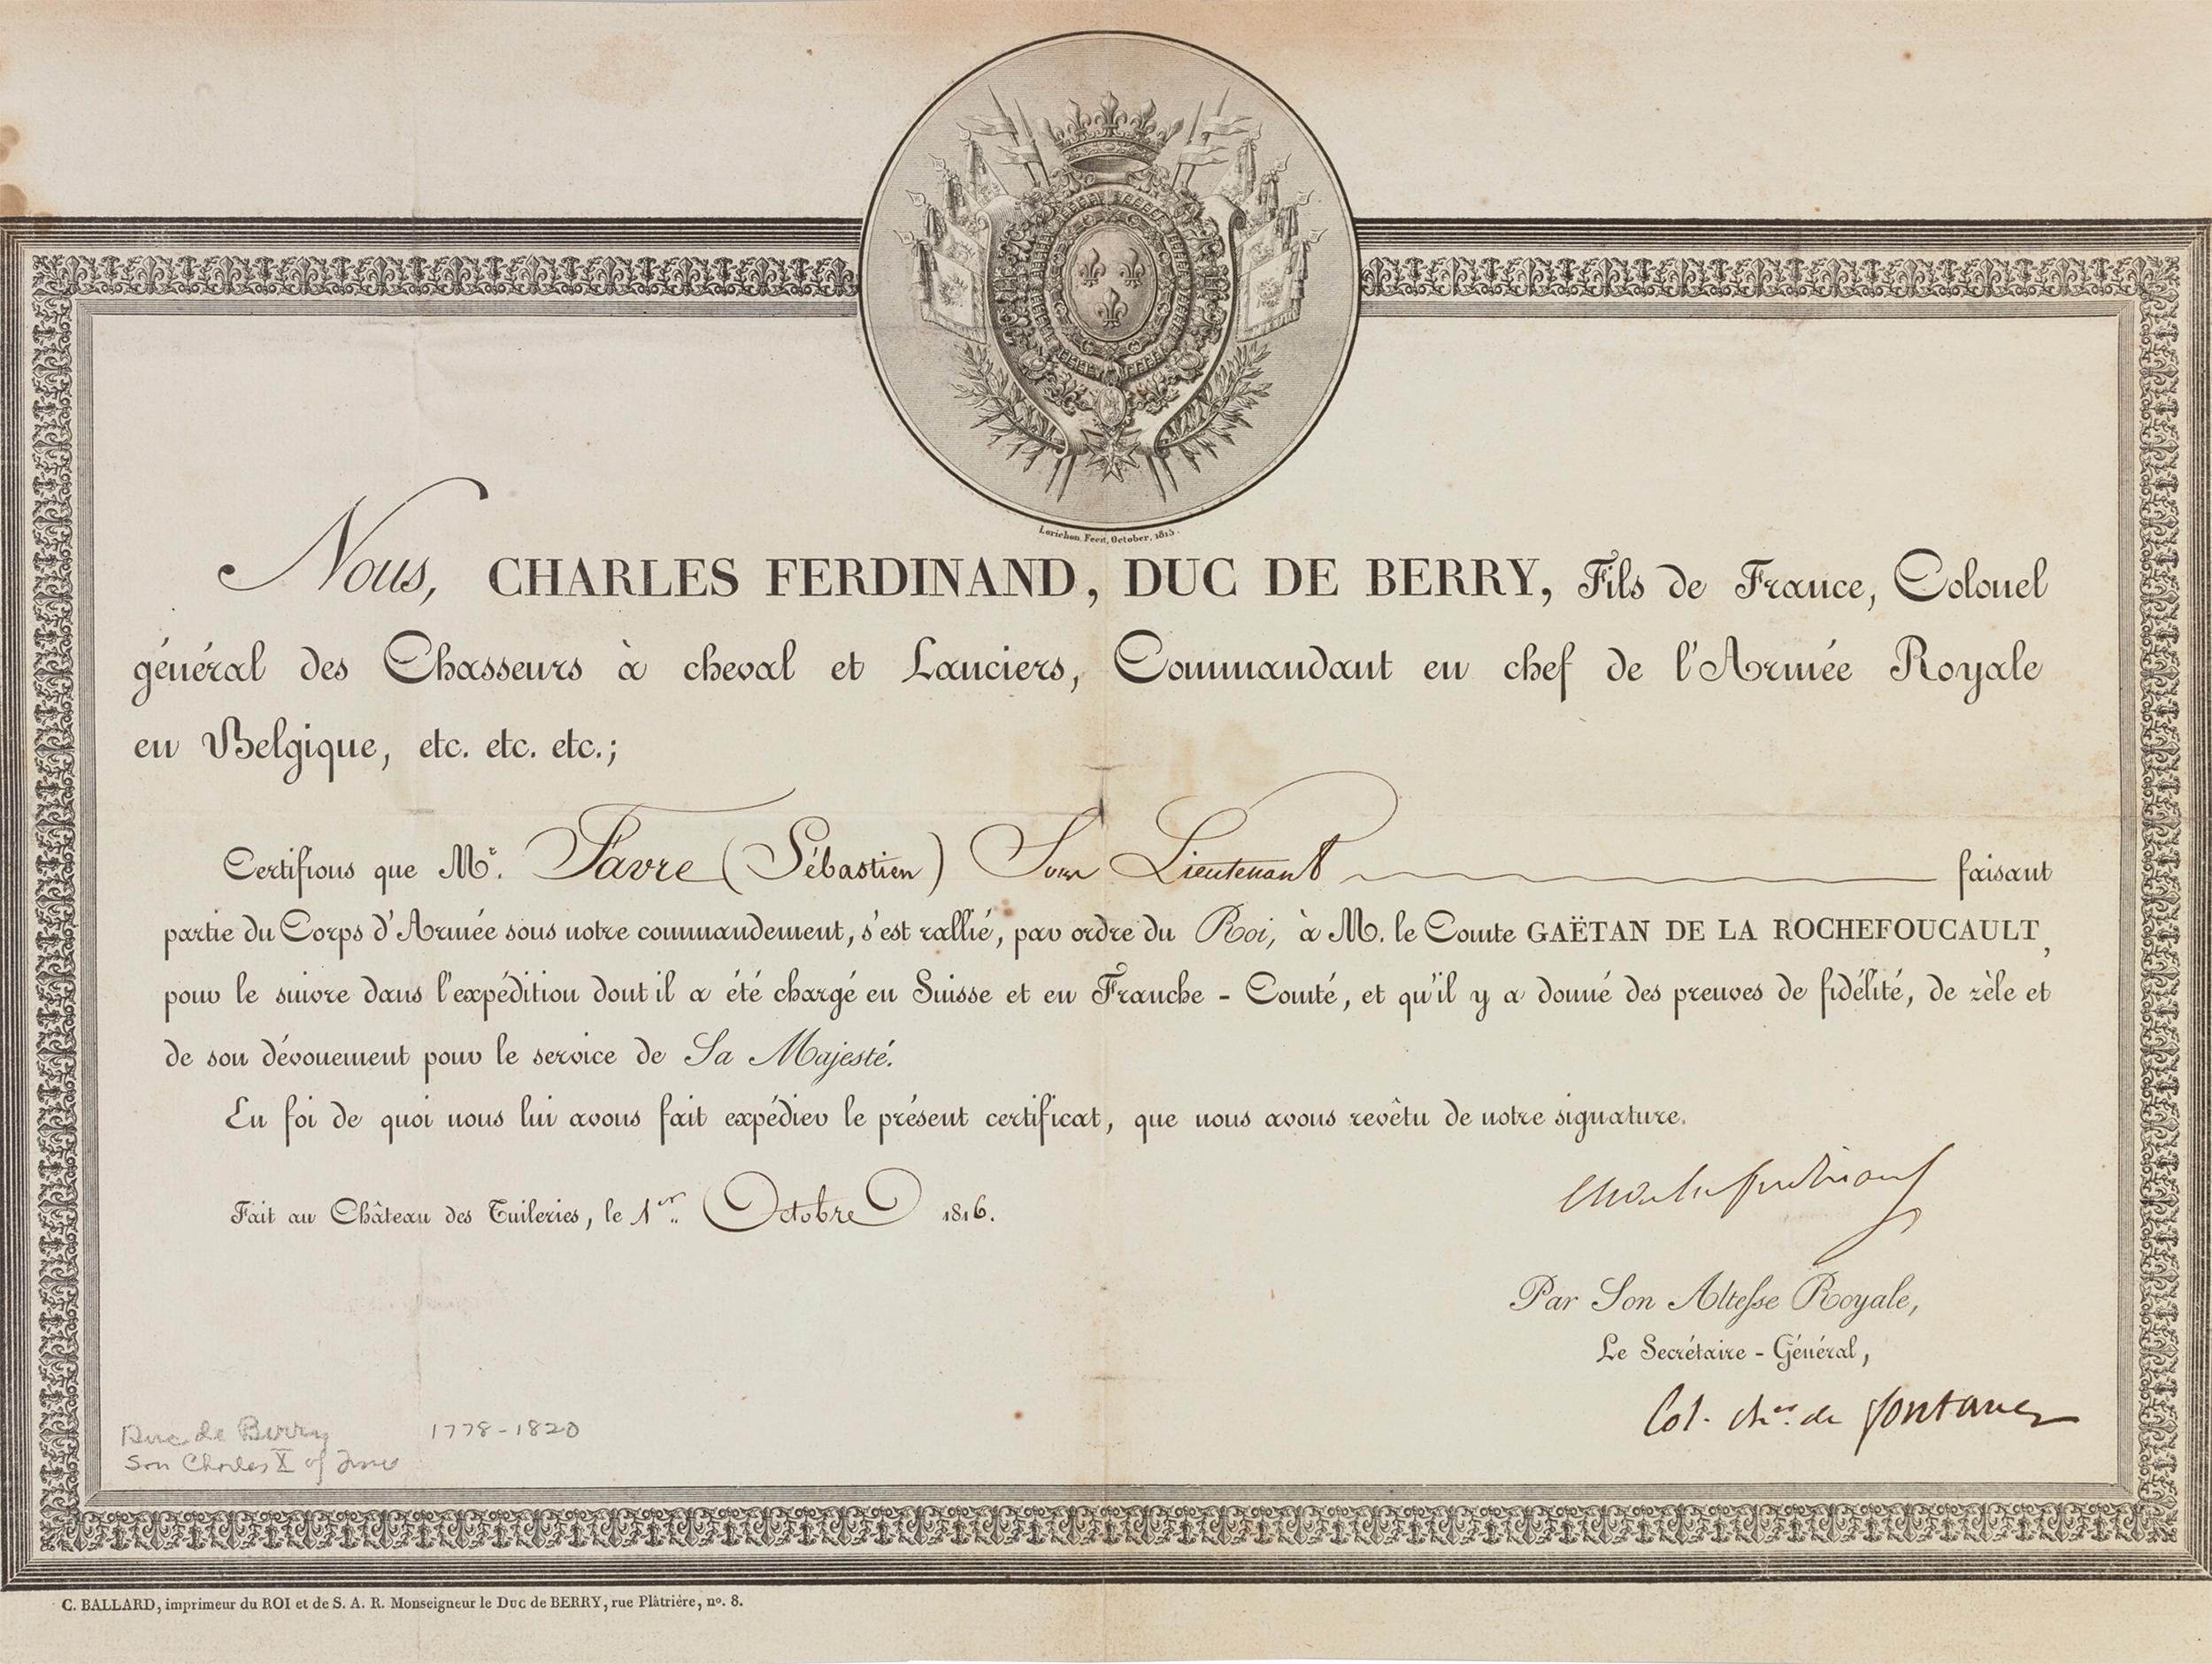 Lorichon Fecit, October, 1815.
Nous, CHARLES FERDINAND, DUC DE BERRY, Fils de France, Colonel
général des Chasseurs à cheval et Lanciers, Commandant en chef de l'Armée Royale
en Belgique, etc. etc. etc.;
Certifions que Mr. Favre (Sébastien) Sous Lieutenant faisant
partie du Corps d'Armée sous notre commandement, s'est rallié, par ordre du Roi, à M. le Comte GAËTAN DE LA ROCHEFOUCAULT,
pour le suivre dans l'expédition dont il a été chargé en Suisse et en Franche-Comté, et qu'il y a donné des preuves de fidélité, de zèle et
de son dévouement pour le service de Sa Majesté.
En foi de quoi nous lui avons fait expédier le présent certificat, que nous avons revêtu de notre signature.
Fait au Château des Tuileries, le 1er. Octobre 1816.
Charles ferdinand
Par Son Altesse Royale,
Le Secrétaire-Général,
Col. cher. de fontanes
Duc de Berry 1778-1820
Son Charles X of France
C. BALLARD, imprimeur du ROI et de S. A. R. Monseigneur le Duc de BERRY, rue Plâtrière, no. 8.